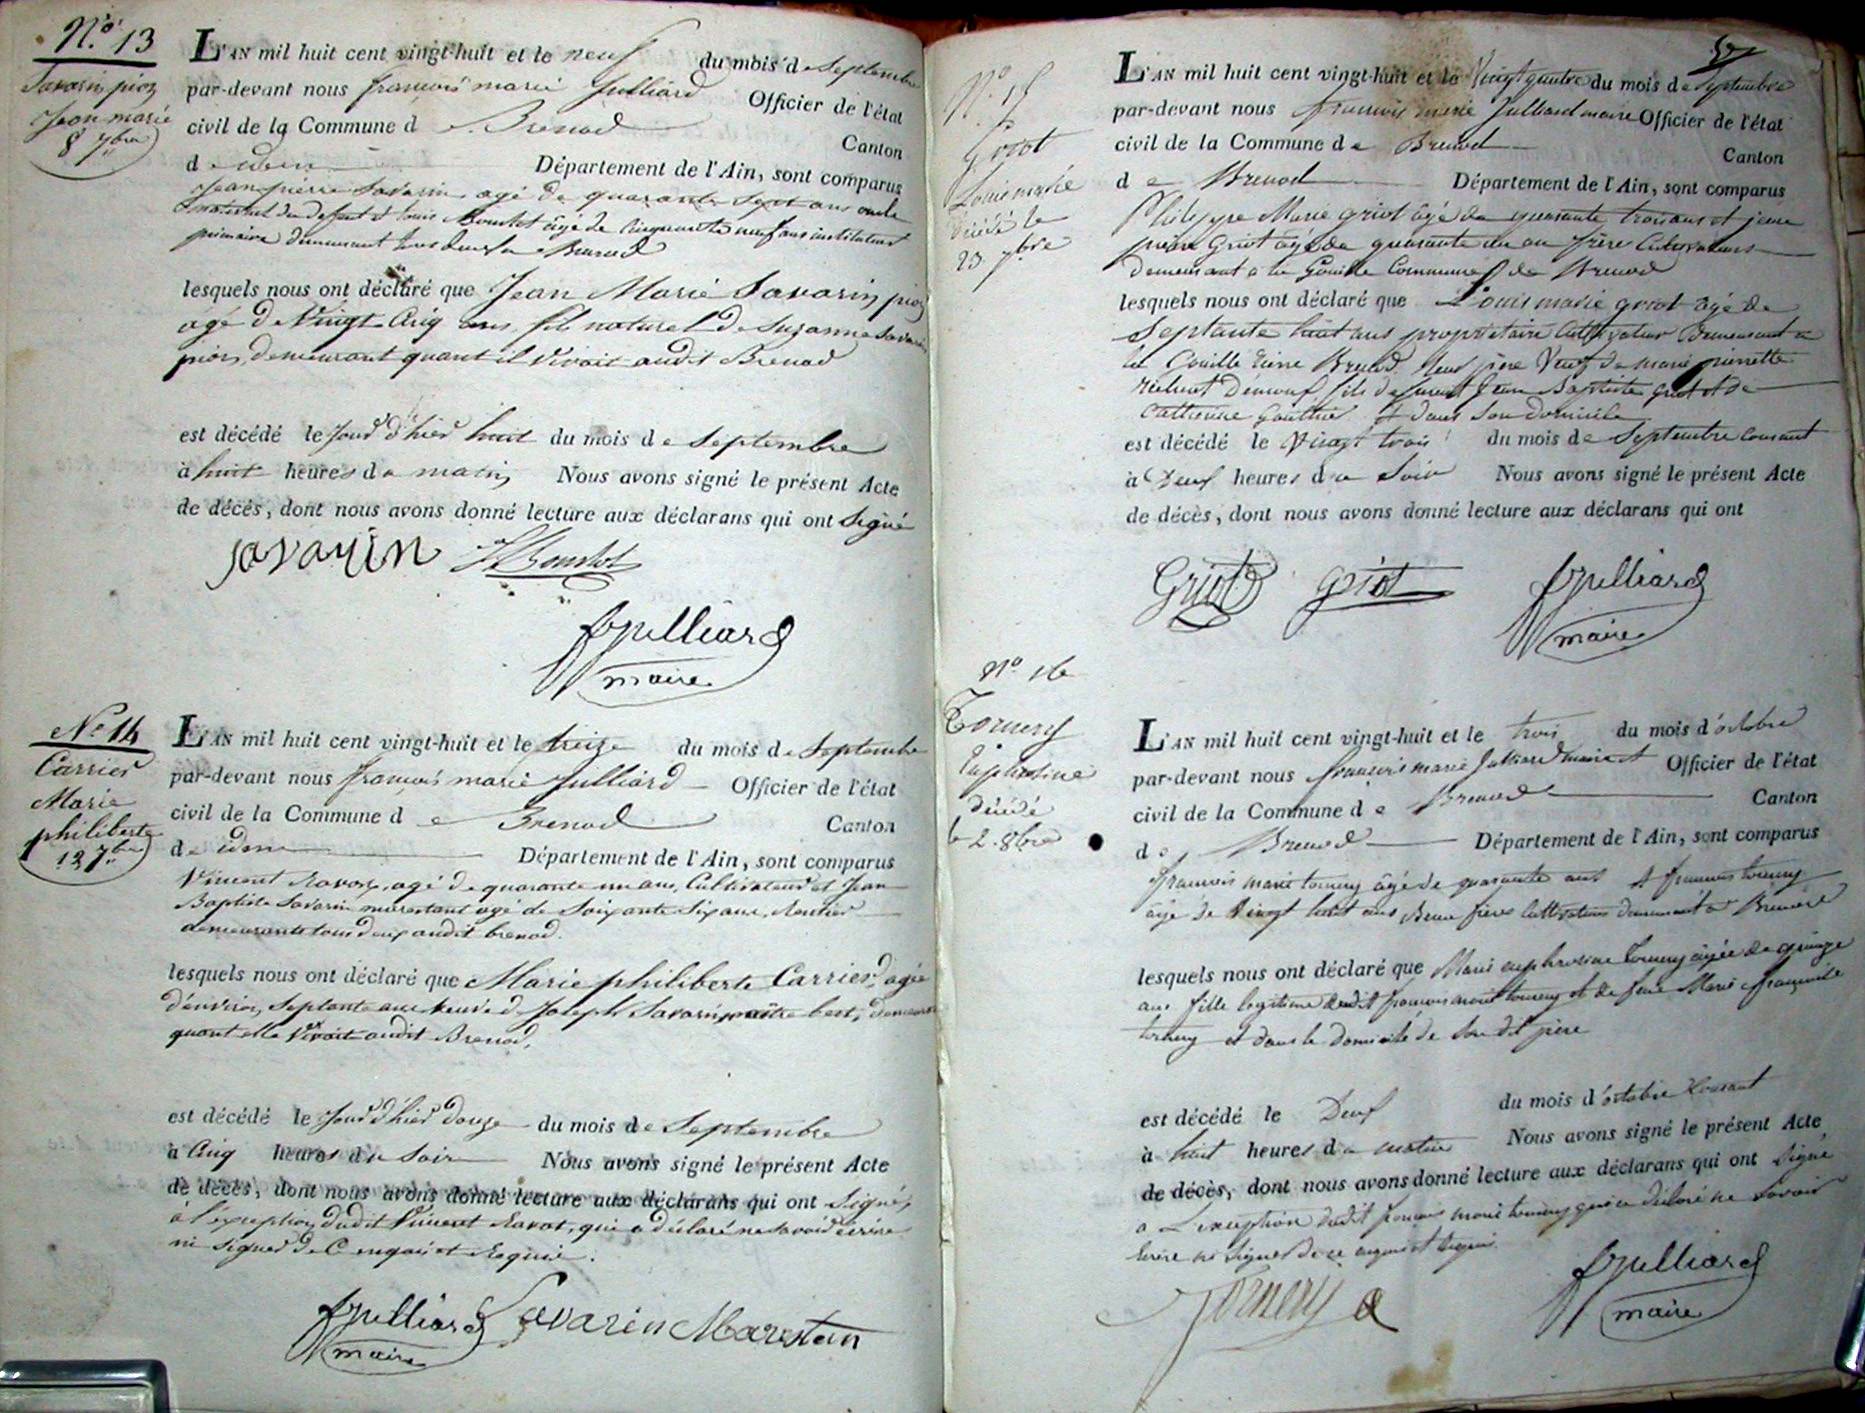 N.º 13
Savarin pioz
Jean marié
8 7bre
L'AN mil huit cent vingt-huit et le neuf du mois d e Septembre
par-devant nous françois marie Julliard Officier de l'état
civil de la Commune d e Brenod Canton
d e idem Département de l'Ain, sont comparus
Jean pierre Savarin agé de quarante sept ans oncle
maternel du defunt et louis Bourlot âgé de Cinquante neuf ans instituteur
primaire demeurant tous deux a Brenod
lesquels nous ont déclaré que Jean Marie Savarin pioz
agé de Vingt Cinq ans, fils naturel de Suzanne Savarin
pioz, demeurant quant il Vivait audit Brenod
est décédé le jour d'hier huit du mois d e Septembre
à huit heures d u matin Nous avons signé le présent Acte
de décés, dont nous avons donné lecture aux déclarans qui ont Signé
Savarin
Julliard
maire
Nº 14
Carrier
Marie
philiberte
12 7bre
L'AN mil huit cent vingt-huit et le treize du mois d e Septembre
par-devant nous françois marie Julliard Officier de l'état
civil de la Commune d e Brenod Canton
d e idem Département de l'Ain, sont comparus
Vincent Ravot, agé de quarante un ans, Cultivateur et Jean
Baptiste Savarin marestant agé de Soixante Six ans, Rentier
demeurants tous deux audit brenod.
lesquels nous ont déclaré que Marie philiberte Carrier, agée
d'environ Septante ans veuve d Joseph Savarin, demeurant
quant elle Vivait audit Brenod,
est décédé le jour d'hier douze du mois d e Septembre
à Cinq heures d u Soir Nous avons signé le présent Acte
de décès, dont nous avons donné lecture aux déclarans qui ont Signé,
à l'éxception dudit Vincent Ravot, qui a déclaré ne Savoir écrire
ni signer de C enquis et Requis.
Julliard Savarin Marestan
maire
57
Nº 15
Griot
Louis marie
décédé le
23 7bre
L'AN mil huit cent vingt-huit et le Vingt quatre du mois d e Septembre
par-devant nous françois marie Julliard maire Officier de l'état
civil de la Commune d e Brenod Canton
d e Brenod Département de l'Ain, sont comparus
Philippe Marie griot âgé de quarante trois ans et jean
pierre Griot âgé de quarante un an frère Cultivateurs
demeurant a la Gouille Commune de Brenod
lesquels nous ont déclaré que Louis marie griot âgé de
Septante huit ans proprietaire Cultivateur Demeurant a
la Gouille Brenod leur père Veuf de marie pierrette
fils de Jean Baptiste griot et de
Catherine Gauthier et dans Son domicile
est décédé le Vingt trois du mois d e Septembre Courant
à Deux heures d u Soir Nous avons signé le présent Acte
de décès, dont nous avons donné lecture aux déclarans qui ont
Griot Griot Julliard
maire
Nº 16
Tornery
Euphrosine
Décédé
le 2. 8bre
L'AN mil huit cent vingt-huit et le trois du mois d'octobre
par-devant nous francois marie Julliard maire et Officier de l'état
civil de la Commune d e Brenod Canton
d e Brenod Département de l'Ain, sont comparus
francois marie tornery âgé de quarante ans et francois tornery
âgé de Vingt huit ans Deux frères Cultivateurs demeurant a
lesquels nous ont déclaré que Marie euphrosine Tornery âgée de quinze
ans fille legitime dudit francois marie tornery et de feue Marie françoise
tornery et dans le domicile de Son dit père
est décédé le Deux du mois d'octobre Courant
à huit heures d u matin Nous avons signé le présent Acte
de décès, dont nous avons donné lecture aux déclarans qui ont Signé
a L'exception dudit francois marie tornery qui a déclaré ne Savoir
Ecrire ni Signer De ce enquis et Requis
Tornery Julliard
maire